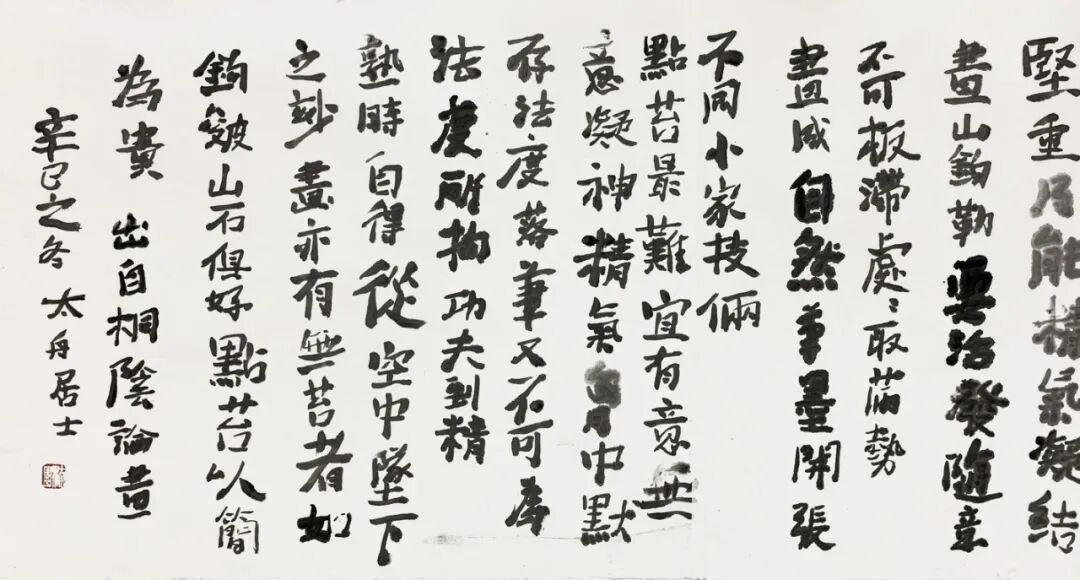 堅重乃能精氣凝結
畫山鉤勒要活發隨意
不可板滯處〻取勢
畫成自然筆墨開張
不同小家技倆
點苔最難宜有意無
意凝神精氣胸中默
存法度落筆又不可為
法度所拘功夫到精
熟時自得從空中墜下
之妙畫亦有無苔者如
鉤皴山石俱好點苔以簡
為貴 出自桐陰論畫
辛巳之冬 太舟居士